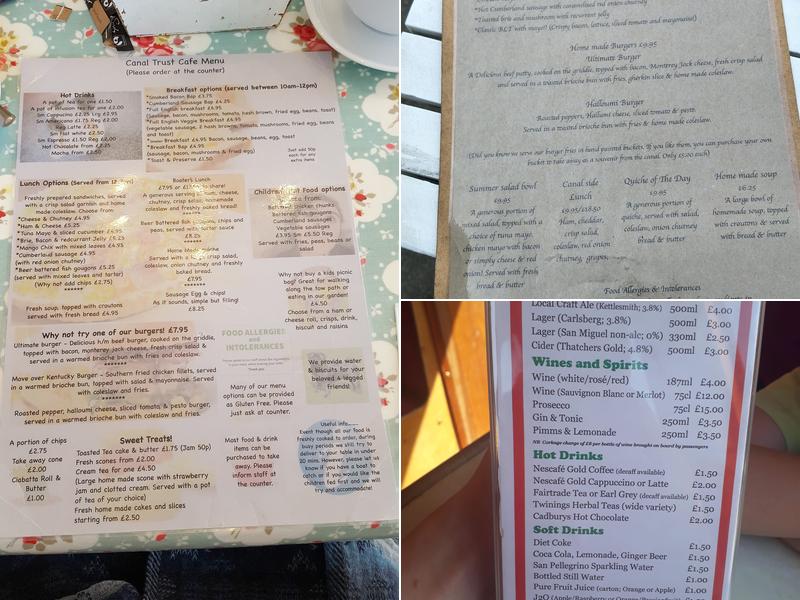 Canal Trust Cafe Menu
(Please order at the counter)
Hot Drinks
A pot of Tea for one £1.50
A pot of infusion tea for one £2.00
Sm Cappucino £2.25 Lrg £2.95
Sm Americano £1.75 Reg £2.00
Reg Latte £2.25
Sm flat white £2.50
Sm Espresso £1.50 Reg £2.00
Hot Chocolate from £2.25
Mocha from £2.50
Breakfast options (served between 10am-12pm)
*Smoked Bacon Bap £3.75
*Cumberland Sausage Bap £4.25
*Full English breakfast £6.95
(Sausage, bacon, mushrooms, tomato, hash brown, fried egg, beans, toast)
*Full English Veggie Breakfast £6.95
(Vegetable sausage, 2 hash browns, tomato, mushrooms, fried egg, beans
and toast)
Breakfast £4.95 Bacon, sausage, beans, egg, toast
*Breakfast Bap £4.95
(Sausage, bacon, mushrooms & fried egg)
*Toast & Preserve £1.50
Just add 50p
each for any
extra items
Lunch Options (Served from 12
Freshly prepared sandwiches, served
with a crisp salad garnish and home
made coleslaw. Choose from
*Cheese & Chutney £4.95
*Ham & Cheese £5.25
*Tuna Mayo & sliced cucumber £4.95
*Brie, Bacon & redcurrant Jelly £5.25
*Mango Chix with mixed leaves £4.95
*Cumberland sausage £4.95
(with red onion chutney)
*Beer battered fish goujons £5.25
(served with mixed leaves and tartar)
(Why not add chips £2.75)
******
Fresh soup, topped with croutons
served with fresh bread £4.95
Boater's Lunch
£7.95 or
to share!
A generous serving
ham, cheese,
chutney, crisp salad, homemade
coleslaw and freshly baked bread!
******
Beer Battered fish goujons, chips and
peas, served with tartar sauce
£8.25
******
Home Made Quiche
Served with a large crisp salad,
coleslaw, onion chutney and freshly
baked bread.
£7.95
******
Sausage Egg & chips!
As it sounds, simple but filling!
£8.25
Children's hot Food options
Pasta from:
Battered chicken chunks
Battered fish goujons
Cumberland sausages
Vegetable sausages
£3.95 Sm £5.50 Reg
Served with fries, peas, beans or
salad
Why not buy a kids picnic
bag! Great for walking
along the tow path or
eating in our garden!
£4.50
Choose from a ham or
cheese roll, crisps, drink,
biscuit and raisins
Why not try one of our burgers! £7.95
Ultimate burger - Delicious h/m beef burger, cooked on the griddle,
topped with bacon, monterey jack cheese, fresh crisp salad &
served in a warmed brioche bun with fries and coleslaw.
******
Move over Kentucky Burger - Southern fried chicken fillets, served
in a warmed brioche bun, topped with salad & mayonnaise. Served
with coleslaw and fries.
******
Roasted pepper, halloumi cheese, sliced tomato & pesto burger,
served in a warmed brioche bun with coleslaw & fries.
FOOD ALLERGIES
and
INTOLERANCES
Many of our menu
options can be provided
as Gluten Free. Please
just ask at counter.
We provide water
& biscuits for your
beloved 4 legged
friends!
A portion of chips
£2.75
Take away cone
£2.00
Ciabatta Roll &
Butter
£1.00
Sweet Treats!
Toasted Tea cake & butter £1.75 (Jam 50p)
Fresh scones from £2.00
Cream tea for one £4.50
(Large home made scone with strawberry
jam and clotted cream. Served with a pot
of tea of your choice)
Fresh home made cakes and slices
starting from £2.50
Most food & drink
items can be
purchased to take
away. Please
inform staff at
the counter.
Useful info........
Even though all our food is
freshly cooked to order, during
busy periods we still try to
deliver to your table in under
20 mins. However, please let us
know if you have a boat to
catch or if you would like the
children fed first and we will
try and accommodate!
*Hot Cumberland sausage with caramelised red onion chutney
*Toasted brie and mushroom with recurrent jelly
*Classic BLT with mayo!! (Crispy bacon, lettuce, sliced tomato and mayonnaise)
Home made Burgers £9.95
Ultimate Burger
A Delicious beef patty, cooked on the griddle, topped with bacon, Monterey Jack cheese, fresh crisp salad
and served in a toasted brioche bun with fries, gherkin slice & home made coleslaw.
Halloumi Burger
Roasted peppers, Hallumi cheese, sliced tomato & pesto.
Served in a warmed brioche bun with fries & home made coleslaw.
(Did you know we serve our burger fries in hand painted buckets. If you like them, you can purchase your own
bucket to take away as a souvenir from the canal. Only £5.00 each)
Summer salad bowl
£9.95
A generous portion of
mixed salad, topped with a
choice of tuna mayo,
chicken mayo with bacon
or simply cheese & red
onion! Served with fresh
bread & butter
Canal side
Lunch
£9.95/£18.50
Ham, cheddar,
crisp salad,
coleslaw, red onion
chutney, grapes,
Quiche of The Day
£9.95
A generous portion of
quiche, served with salad,
coleslaw, onion chutney
bread & butter
Home made soup
£6.25
A large bowl of
homemade soup, topped
with croutons & served
with bread & butter
Food Allergies & Intolerances
Local Craft Ale (Kettlesmith; 3.8%) 500ml £4.00
Lager (Carlsberg; 3.8%) 500ml £3.00
Lager (San Miguel non-alc; 0%) 330ml £2.50
Cider (Thatchers Gold; 4.8%) 500ml £3.00
Wines and Spirits
Wine (white/rosé/red) 187ml £4.00
Wine (Sauvignon Blanc or Merlot) 75cl £12.00
Prosecco 75cl £15.00
Gin & Tonic 250ml £3.50
Pimms & Lemonade 250ml £3.50
NB Corkage charge of £6 per bottle of wine brought on board by passengers
Hot Drinks
Nescafé Gold Coffee (decaff available) £1.50
Nescafé Gold Cappuccino or Latte £2.00
Fairtrade Tea or Earl Grey (decaff available) £1.50
Twinings Herbal Teas (wide variety) £1.50
Cadburys Hot Chocolate £2.00
Soft Drinks
Diet Coke £1.50
Coca Cola, Lemonade, Ginger Beer £1.50
San Pellegrino Sparkling Water £1.50
Bottled Still Water £1.00
Pure Fruit Juice (carton; Orange or Apple) £1.00
J2O (Apple/Raspberry or Orange/Passionfruit)